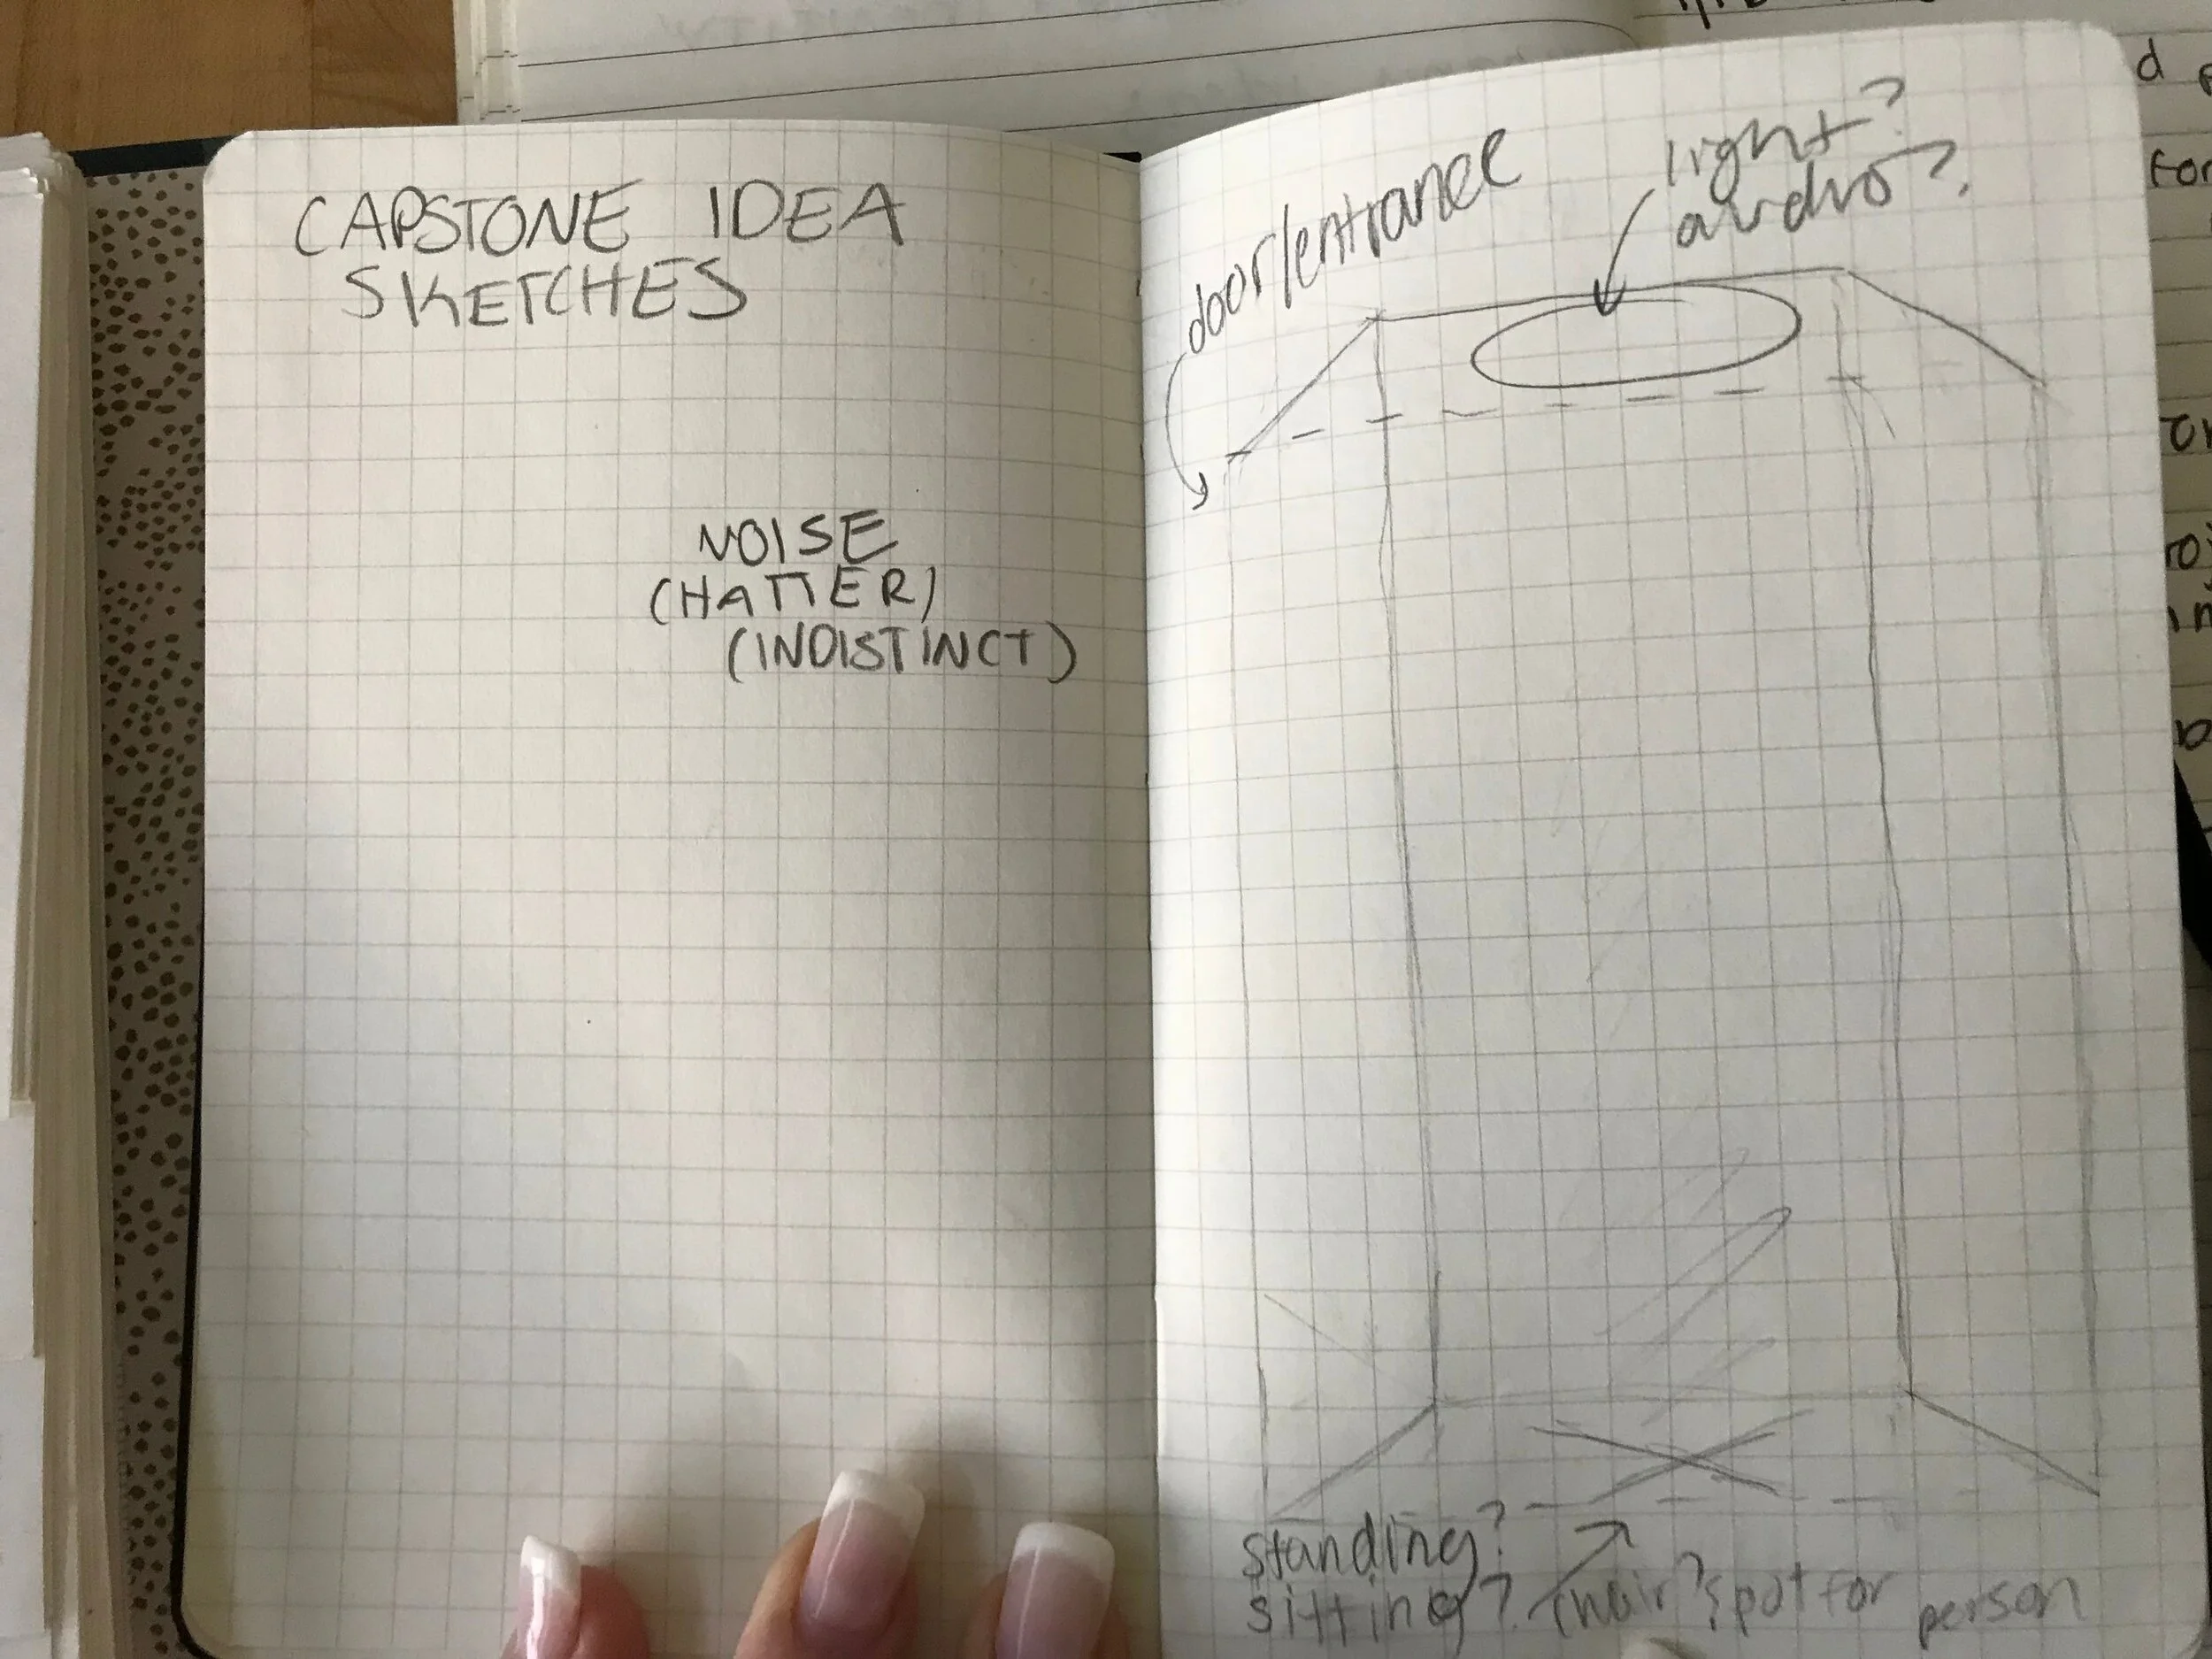 CAPSTONE IDEA
SKETCHES
NOISE
(HATTER)
(INDISTINCT)
door/entrance
light?
audio?
standing?
sitting?
chair? spot for person
d
for
in